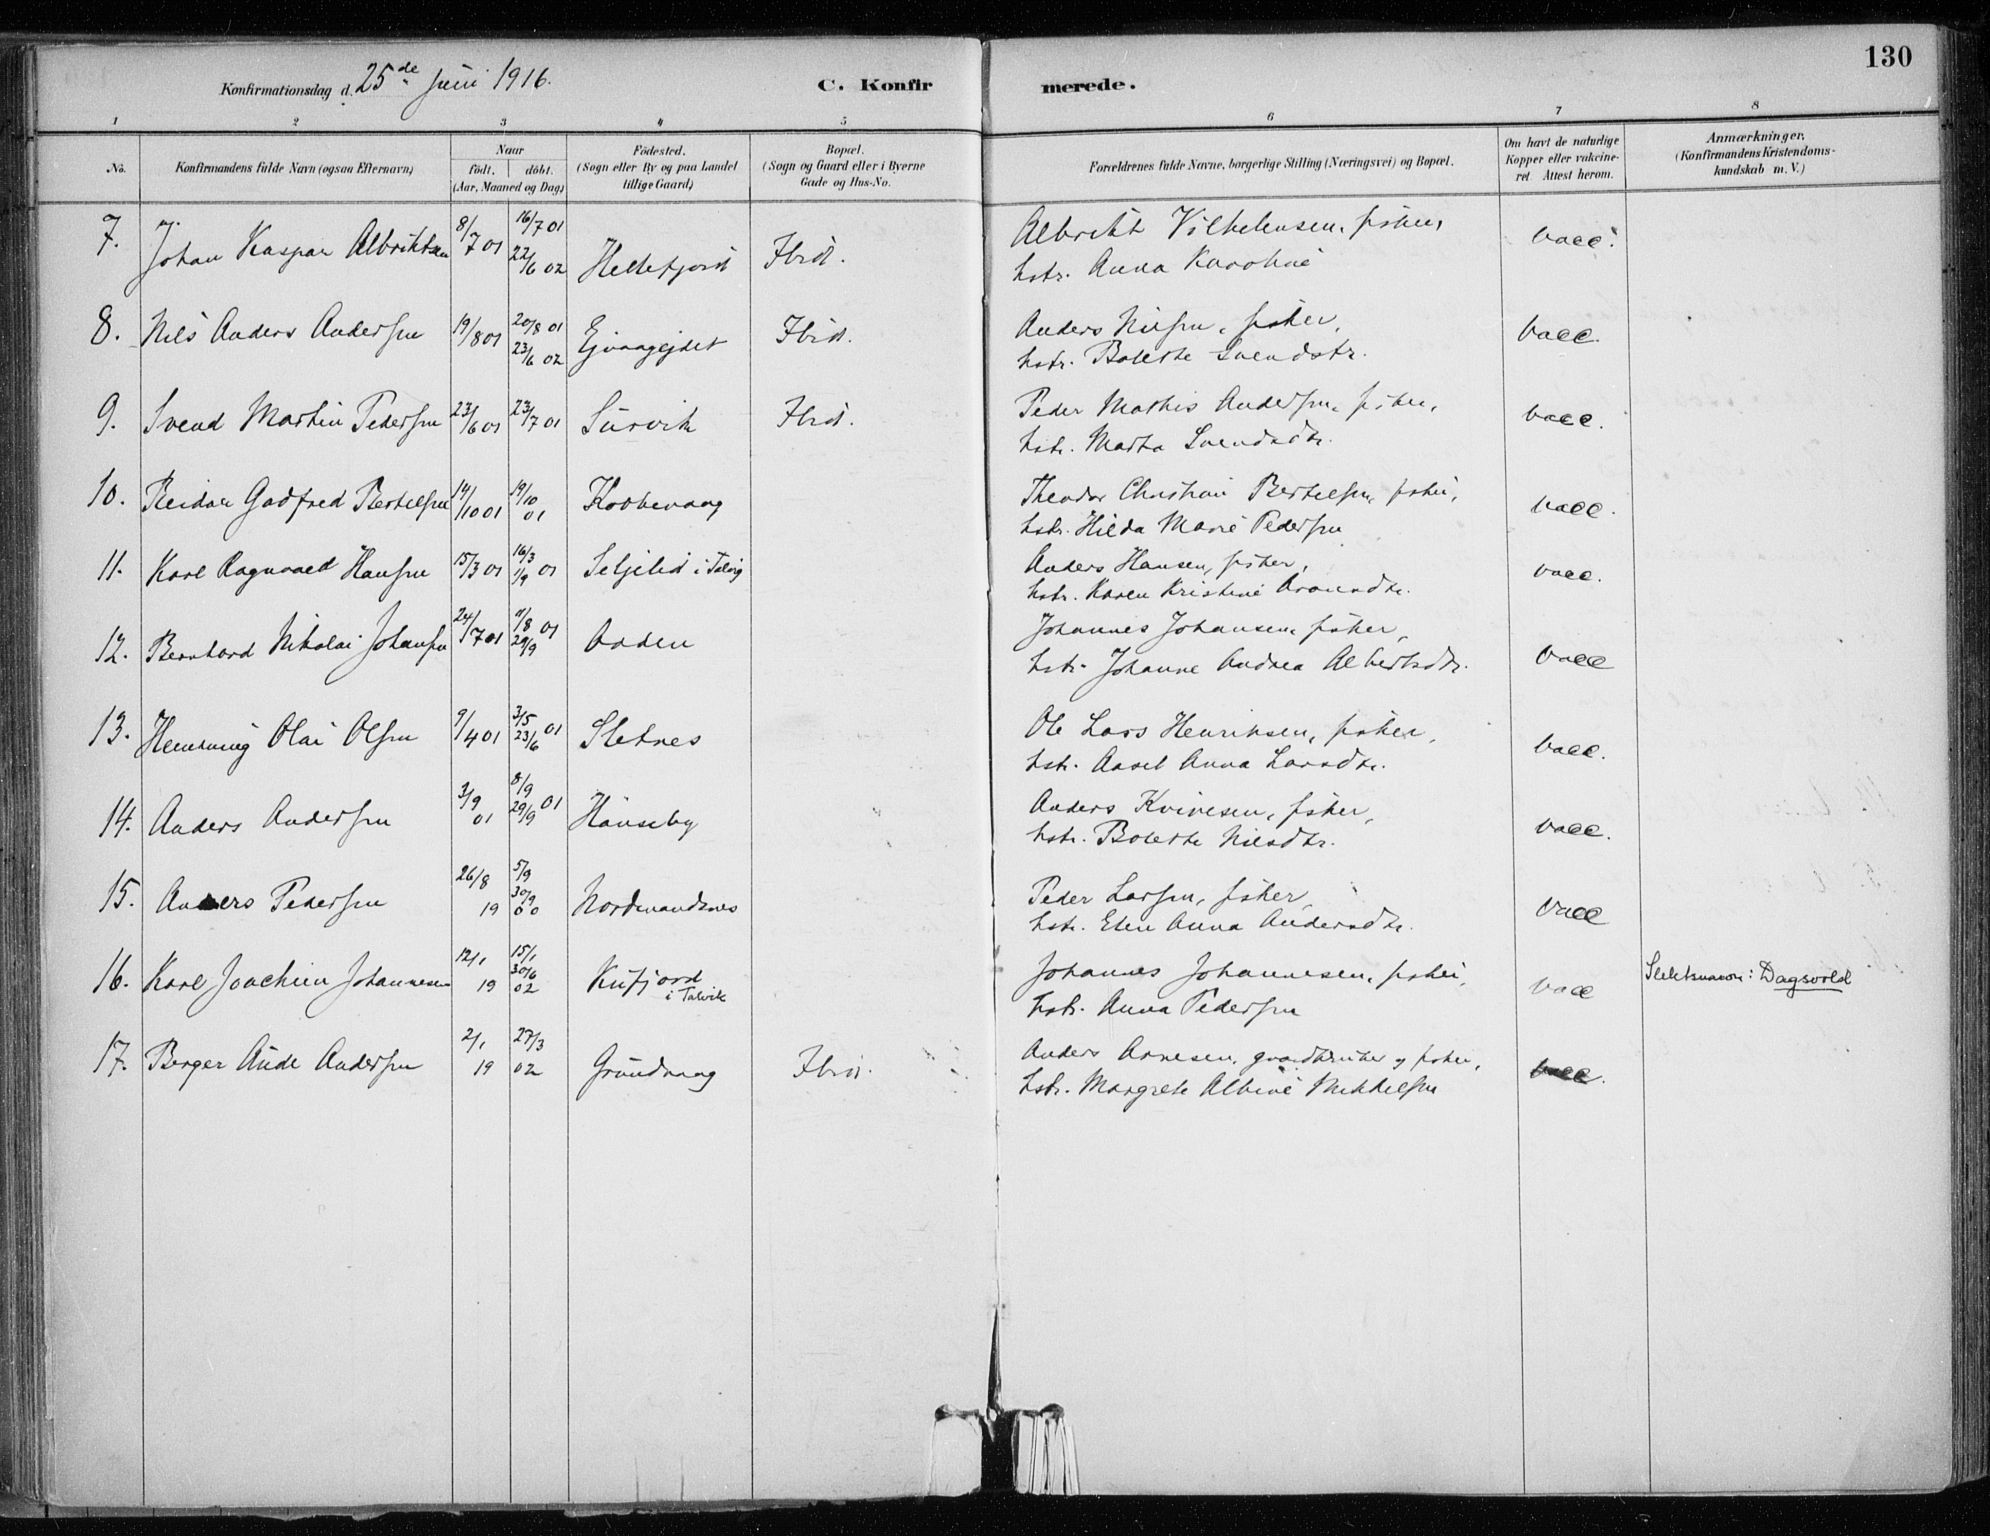 130
Konfirmationsdag d. 25de Juni 1916.
C. Konfirmerede.
1 2 3 4 5 6 7 8
No.
Konfirmandens fulde Navn (ogsaa Efternavn)
Naar
födt. döbt.
(Aar, Maaned og Dag)
Födested.
(Sogn eller By og paa Landet
tillige Gaard)
Bopæl.
(Sogn og Gaard eller i Byerne
Gade og Hus-No.
Forældrenes fulde Navne, borgerlige Stilling (Næringsvei) og Bopæl.
Om havt de naturlige
Kopper eller vakcine-
ret. Attest herom.
Anmærkninger.
(Konfirmandens Kristendoms-
kundskab m. V.)
7. Johan Kaspar Albriktsen 8/7 01 16/7 01 22/6 02 Hellefjord Ibid.
Albrikt Vilhelmsen, fisker,
hstr. Anna Karoline
vacc.
8. Nils Anders Andersen 19/8 01 20/8 01 23/6 02 Ejvaagejdet Ibid.
Anders Nilsen, fisker,
hstr. Bolette Svendsdtr.
vacc.
9. Svend Martin Pedersen 23/6 01 23/7 01 Survik Ibid.
Peder Mathis Andersen, fisker,
hstr. Marta Svendsdtr.
vacc.
10. Reidar Godfred Bertelsen 14/10 01 19/10 01 Kobbevaag
Theodor Christian Bertelsen, fisker,
hstr. Hilda Marie Pedersen
vacc.
11. Karl Ragnvald Hansen 15/3 01 16/3 1/9 01 Seljelid i Talvig
Anders Hansen, fisker,
hstr. Karen Kristine Aronsdtr.
vacc.
12. Bernhard Nikolai Johansen 24/7 01 1/8 29/9 01 Aaden
Johannes Johansen, fisker,
hstr. Johanne Andrea Albertsdtr.
vacc
13. Henning Olai Olsen 9/4 01 3/5 23/6 01 Sletnes
Ole Lars Henriksen, fisker,
hstr. Aasel Anna Larsdtr.
vacc.
14. Anders Andersen 3/9 01 8/9 29/9 01 Hönseby
Anders Kvivesen, fisker,
hstr. Bolette Nilsdtr.
vacc.
15. Anders Pedersen 26/8 19 5/9 30/9 00 Nordmandsnes
Peder Larsen, fisker,
hstr. Elen Anna Andersdtr.
vacc
16. Karl Joachim Johannesen 12/1 19 15/1 30/6 02 Kufjord
i Talvik
Johannes Johannesen, fisker,
hstr. Anna Pedersen
vacc
Slektsnavn: Dagsvold
17. Berger Aude Andersen 2/1 19 27/3 02 Grundvaag Ibid.
Anders Arnesen, gaardbruker og fisker,
hstr. Margrete Albine Mikkelsen
vacc.